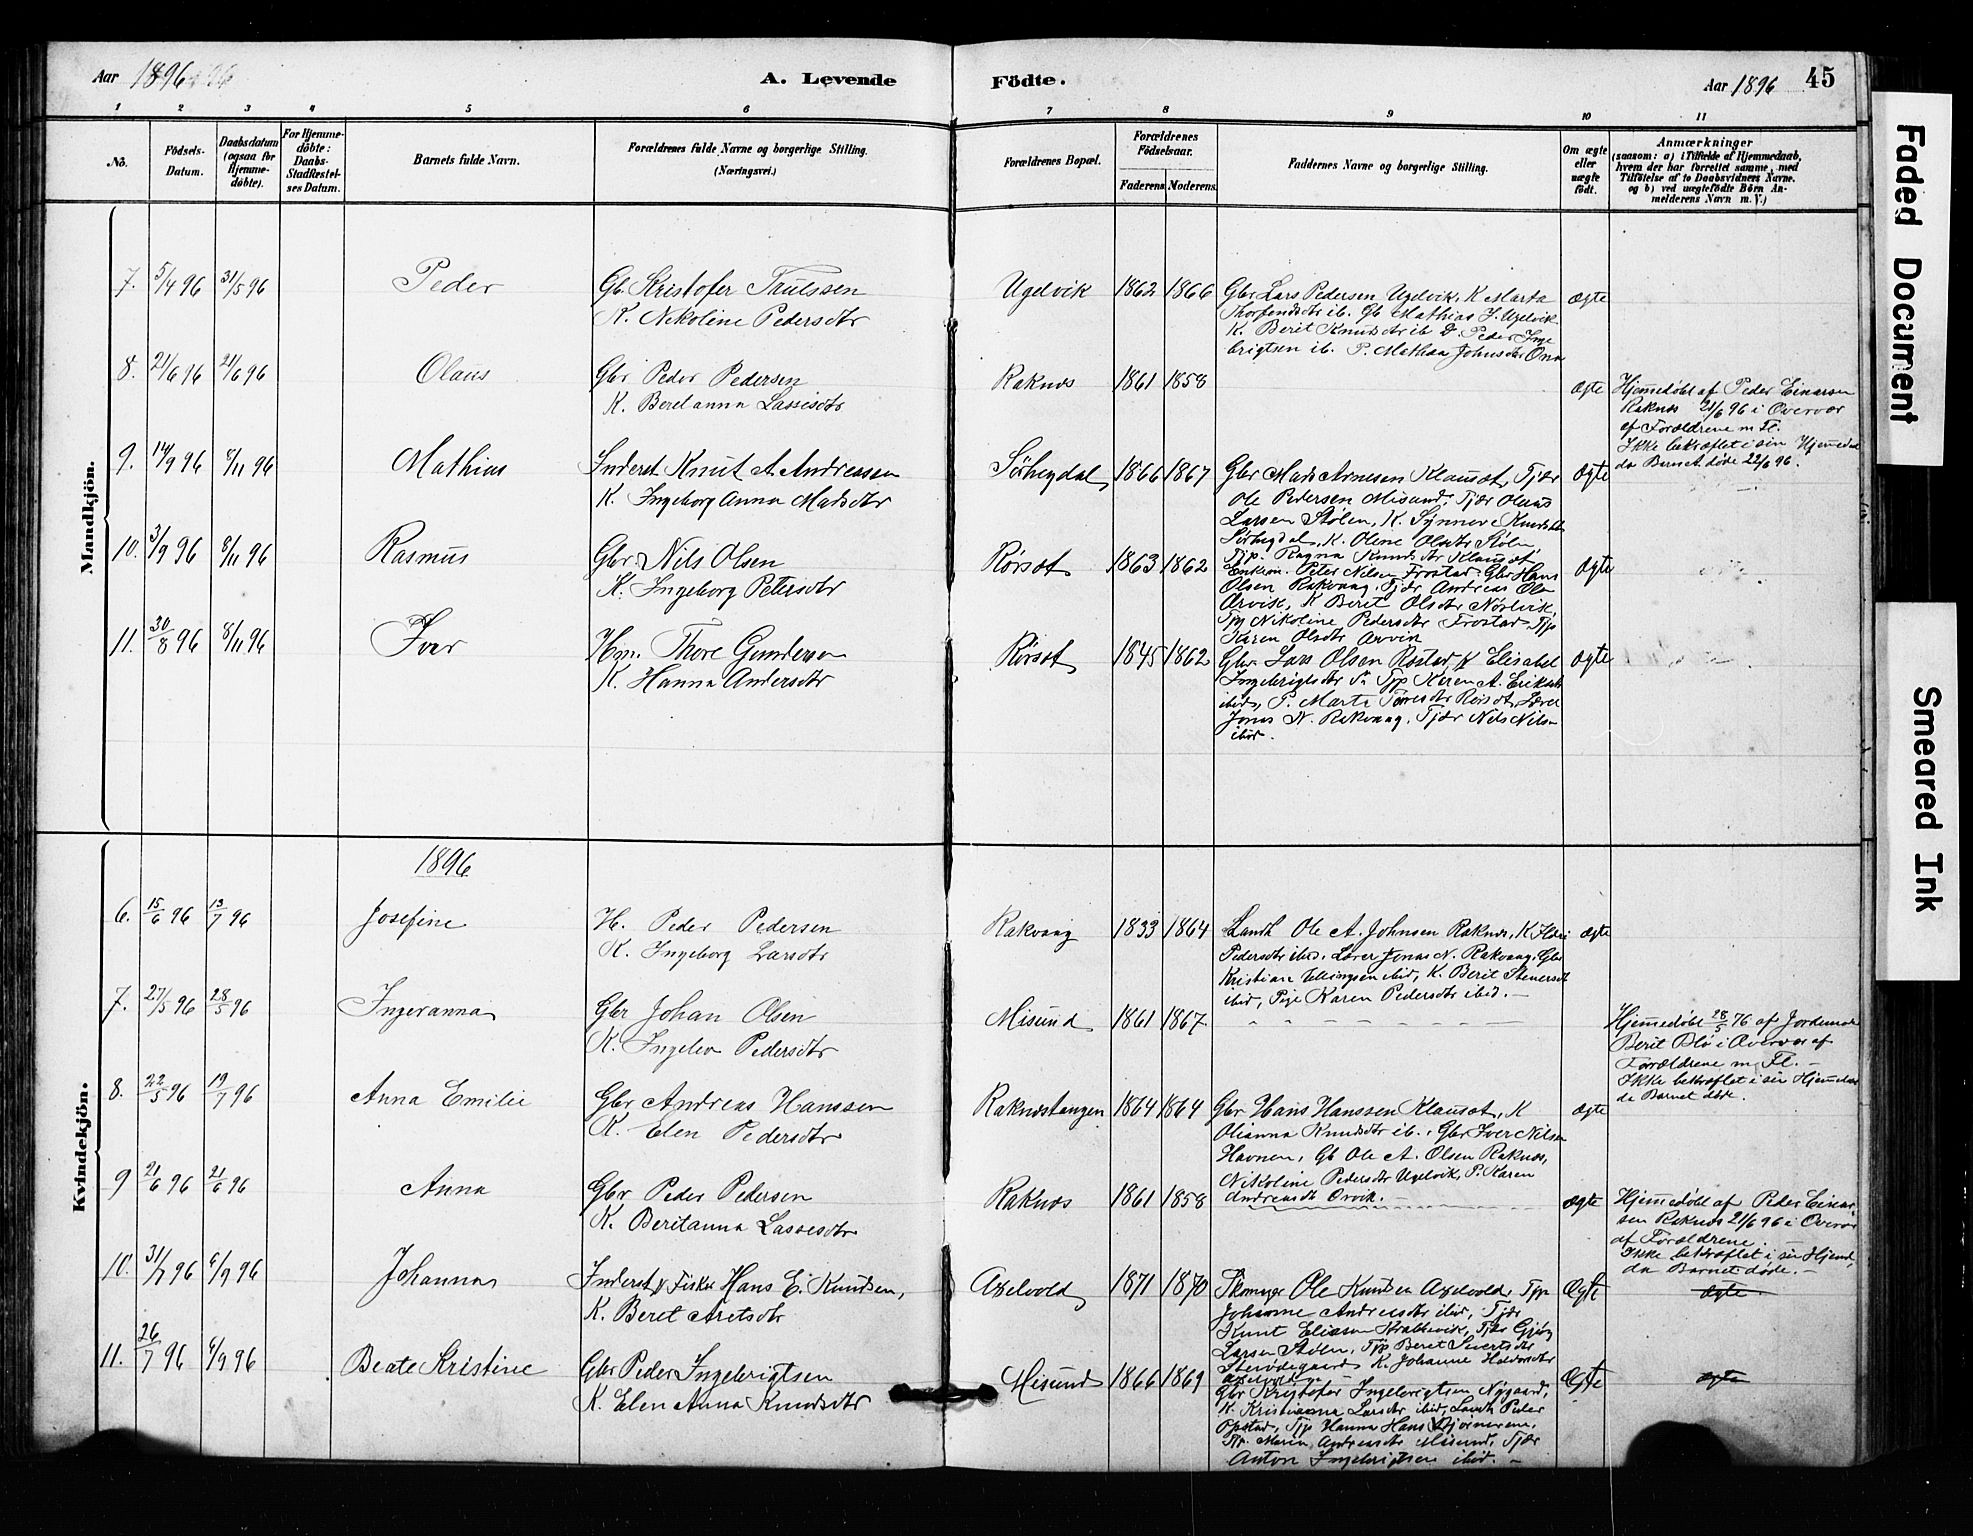 Aar 1896
A. Levende Födte.
Aar 1896 45
1 2 3 4 5 6 7 8 9 10 11
No.
Födsels-Datum.
Daabsdatum (ogsaa for Hjemme-döbte).
For Hjemme-döbte: Daabs-Stadfæstel-ses Datum.
Barnets fulde Navn.
Forældrenes fulde Navne og borgerlige Stilling.
(Næringsvei.)
Forældrenes Bopæl.
Forældrenes Födselsaar.
Faderens Moderens
Faddernes Navne og borgerlige Stilling.
Om ægte eller uægte födt.
Anmærkninger
(saasom: a) i Tilfælde af Hjemmedaab,
hvem der har forrettet samme, med
Tilföielse af to Daabsvidners Navne.
og b) ved uægtefödte Börn An-
melderens Navn m. V.)
Mandkjön.
7. 5/4 96 31/5 96 Peder
Gb. Kristofer Paulssen
K. Nikoline Pedersdtr
Ugelvik 1862 1866
Gbr Lars Pedersen Ugelvik, K Marta
ib. Gb Mathias J. Ugelvik
K. Berit Knudsdtr ib P. Peder Inge
brigtsen ib. P. Mathea Johnsdtr Ona
ægte
8. 21/6 96 21/6 96 Olaus
Gbr Peder Pedersen
K. Beret anna Lassesdtr
Raknæs 1861 1858
ægte
Hjemmedöbt af Peder Einarsen
Raknæs 21/6 96 i Overvær
af Forældrene m Fl.
Ikke bekræftet i sin Hjemmed
da Barnet döde 22/6 96.
9. 14/9 96 8/11 96 Mathias
Inderst Knut A. Andreassen
K. Ingeborg Anna Madsdtr
Sörhegdal 1866 1867
Gbr Mads Arnesen Klauset, Tjær
Ole Pedersen Misund, Tjær Olaus
Larsen Stölen, K. Synnøve Knudsdtr
Sörhegdal, K. Oline Olsdtr Stölen
Tjp. Ragna Knudsdtr Klauset
ægte
10. 3/9 96 8/11 96 Rasmus
Gbr. Nils Olsen
K. Ingeborg Petersdtr
Rörset 1863 1862
Enkem. Peter Nilsen Frostad. Gbr Hans
Olsen Rakvaag. Tjær Andreas Ols
Orvik, K Berit Olsdtr Nörvik,
Tjp Nikoline Pedersdtr Frostad, Tjp
Karen Olsdtr Orvik
ægte
11. 30/8 96 8/11 96 Iver
Hm. Thore Gundersen
K. Hanna Andersdtr
Rörset 1845 1862
Gbr. Lars Olsen Rostad, K Elisabet
Ingebrigtsdtr Tjp Karen A. Eriksdtr
ibid, P. Marta Toresdtr Rörset, Lærer
Jonas N. Rakvaag. Tjær Nils Nilsen
ibid.
ægte
Kvindekjön.
1896
6. 15/6 96 13/7 96 Josefine
H. Peder Pedersen
K. Ingeborg Larsdtr
Rakvaag 1833 1864
Landh Ole A. Johnsen Raknæs, K
Pedersdtr ibid, Lærer Jonas N. Rakvaag. Gbr
Kristian Ellingsen ibid, K. Berit
ibid, Pige Karen Pedersdtr ibid.
ægte
7. 27/5 96 28/5 96 Ingeranna
Gbr Johan Olsen
K. Ingebor Pedersdtr
Misund 1861 1867
Hjemmedöbt 28/5 96 af Jordemor
Berit Blö i Overvær af
Forældrene m Fl.
Ikke bekræftet i sin Hjemmedaab
da Barnet döde.
8. 22/5 96 19/7 96 Anna Emilie
Gbr Andreas Hanssen
K. Elen Pedersdtr
Raknæstangen 1864 1864
Gbr Hans Hanssen Klauset, K
Olianna Knudsdtr ib., Gbr Iver Nilsen
Havnen, Gb Ole A. Olsen Raknæs,
Nikoline Pedersdtr Ugelvik, P. Karen
Andreasdt Orvik.
ægte
9 21/6 96 21/6 96 Anna
Gbr Peder Pedersen
K. Beritanna Lassesdtr
Raknæs 1861 1858
ægte
Hjemmedöbt af Peder Einar-
sen Raknæs 21/6 96 i Overvær
af Forældrene.
Ikke bekræftet i sin Hjemd,
da Barnet döde.
10. 31/7 96 6/9 96 Johanna
Inderst & Fisker Hans E. Knudsen,
K. Beret Aretsdtr
Axelvold 1871 1870
Skomager Ole Knudsen Axelvold, Tjp
Johanne Andreasdtr ibid, Tjær
Knut Eliasen
Larsen Stölen, Tjp Beret Sivertsdtr
K. Johanne
Axelvold
Ægte
ægte
11. 26/7 96 6/9 96 Beate Kristine
Gbr Peder Ingebrigtsen
K. Elen Anna Knudsdtr
Misund 1866 1869
Gbr Kristofer Ingebrigtsen Nygaard,
K. Kristianna Larsdtr ibid, Landh Peder
Opstad, Tjp Hanna Hansd Björnerem,
Tjp. Maria Andreasdtr Misund, Tjær
Anton Ingebrigtsen ibid.
Ægte
ægte
Faded Document
Smeared Ink